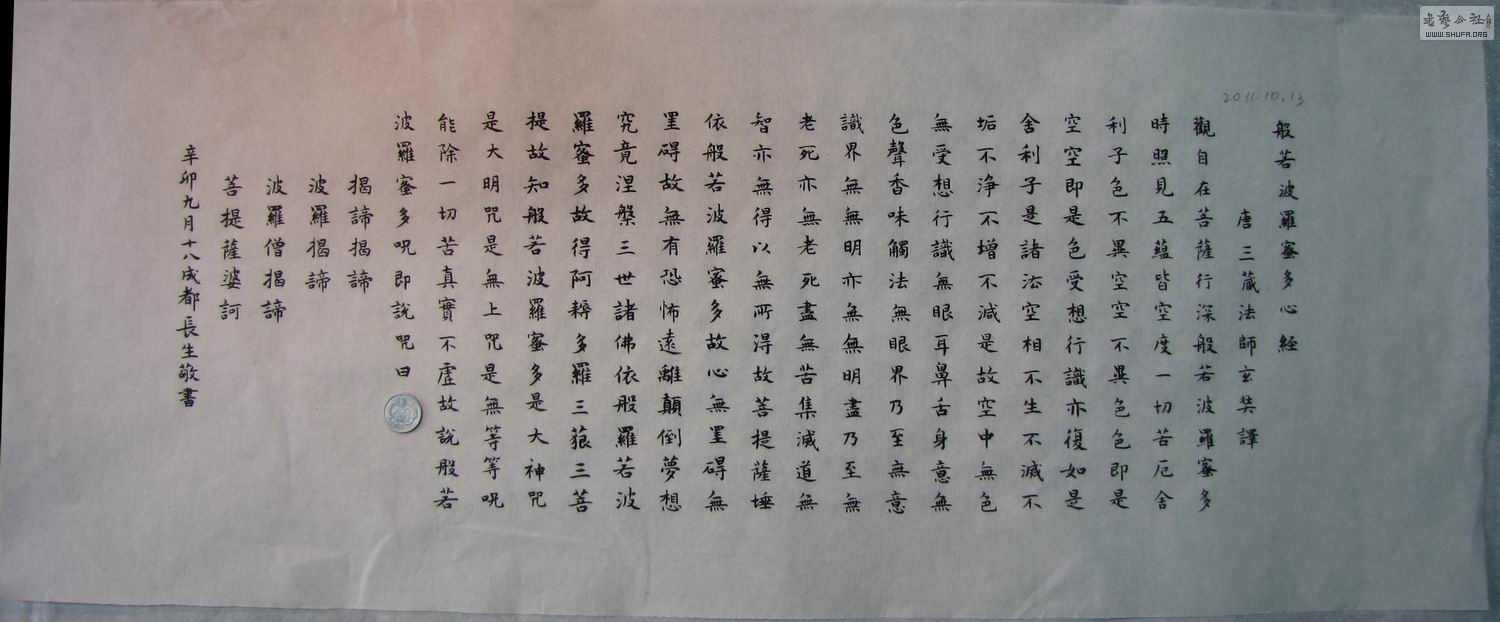 2011.10.13
般若波羅蜜多心経
唐三蔵法師玄奘譯
觀自在菩薩行深般若波羅蜜多
時照見五蘊皆空度一切苦厄舍
利子色不異空空不異色色即是
空空即是色受想行識亦復如是
舍利子是諸法空相不生不滅不
垢不浄不增不減是故空中無色
無受想行識無眼耳鼻舌身意無
色聲香味觸法無眼界乃至無意
識界無無明亦無無明盡乃至無
老死亦無老死盡無苦集滅道無
智亦無得以無所得故菩提薩埵
依般若波羅蜜多故心無罣碍無
罣碍故無有恐怖遠離顛倒夢想
究竟涅槃三世諸佛依般羅若波
羅蜜多故得阿耨多羅三藐三菩
提故知般若波羅蜜多是大神咒
是大明咒是無上咒是無等等呪
能除一切苦真實不虛故說般若
波羅蜜多呪即說咒曰
揭諦揭諦
波羅揭諦
波羅僧揭諦
菩提薩婆訶
辛卯九月十八成都長生敬書
WWW.SHUFA.ORG